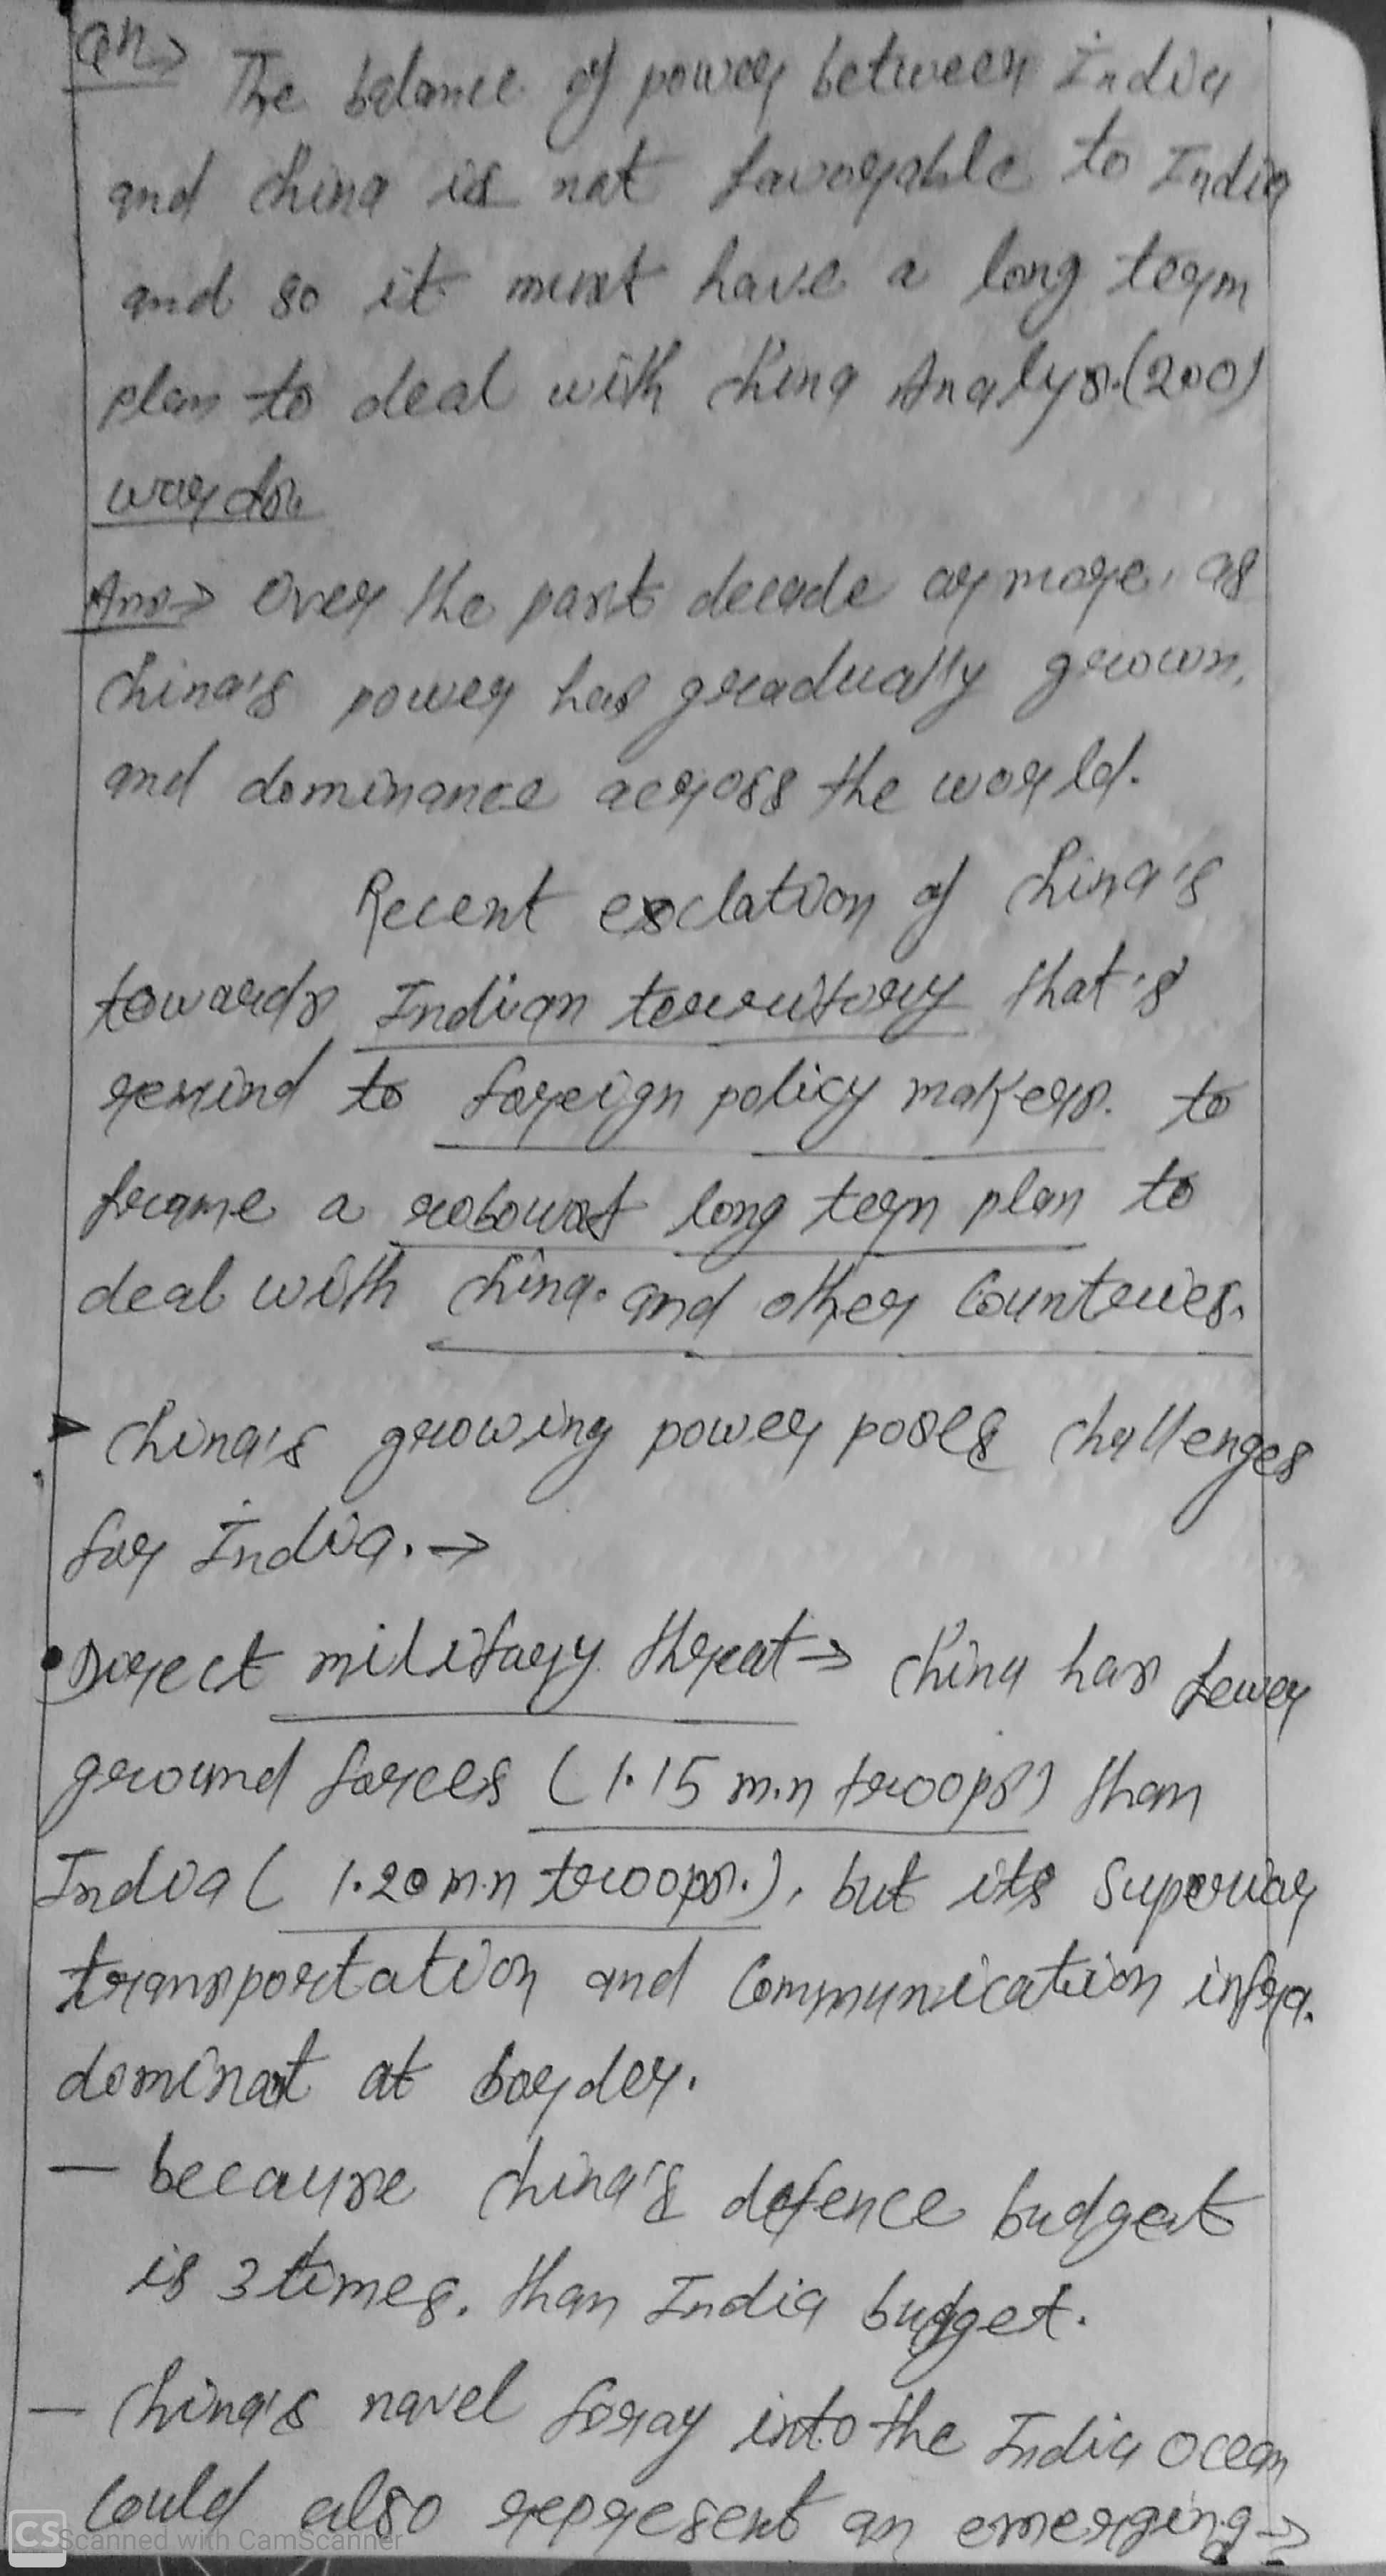 Qn→ The balance of power between India
and China is not favorable to India
and so it must have a long term
plan to deal with China Analys.(200)
words.
Ans→ Over the past decade or more, as
China's power has gradually grown,
and dominance across the world.
Recent esclation of China's
towards Indian territory that's
remind to foreign policy makers. to
frame a roboust long term plan to
deal with China. and other Countries.
► China's growing power poses challenges
for India. →
• Direct military threat → China has fewer
ground forces (1.15 m.n troops) than
India ( 1.20 m.n troops.), but its Superior
transportation and Communication infra.
dominat at border.
— because China's defence budget
is 3 times. than India budget.
— China's navel foray into the India Ocean
Could also represent an emerging →
CS Scanned with CamScanner